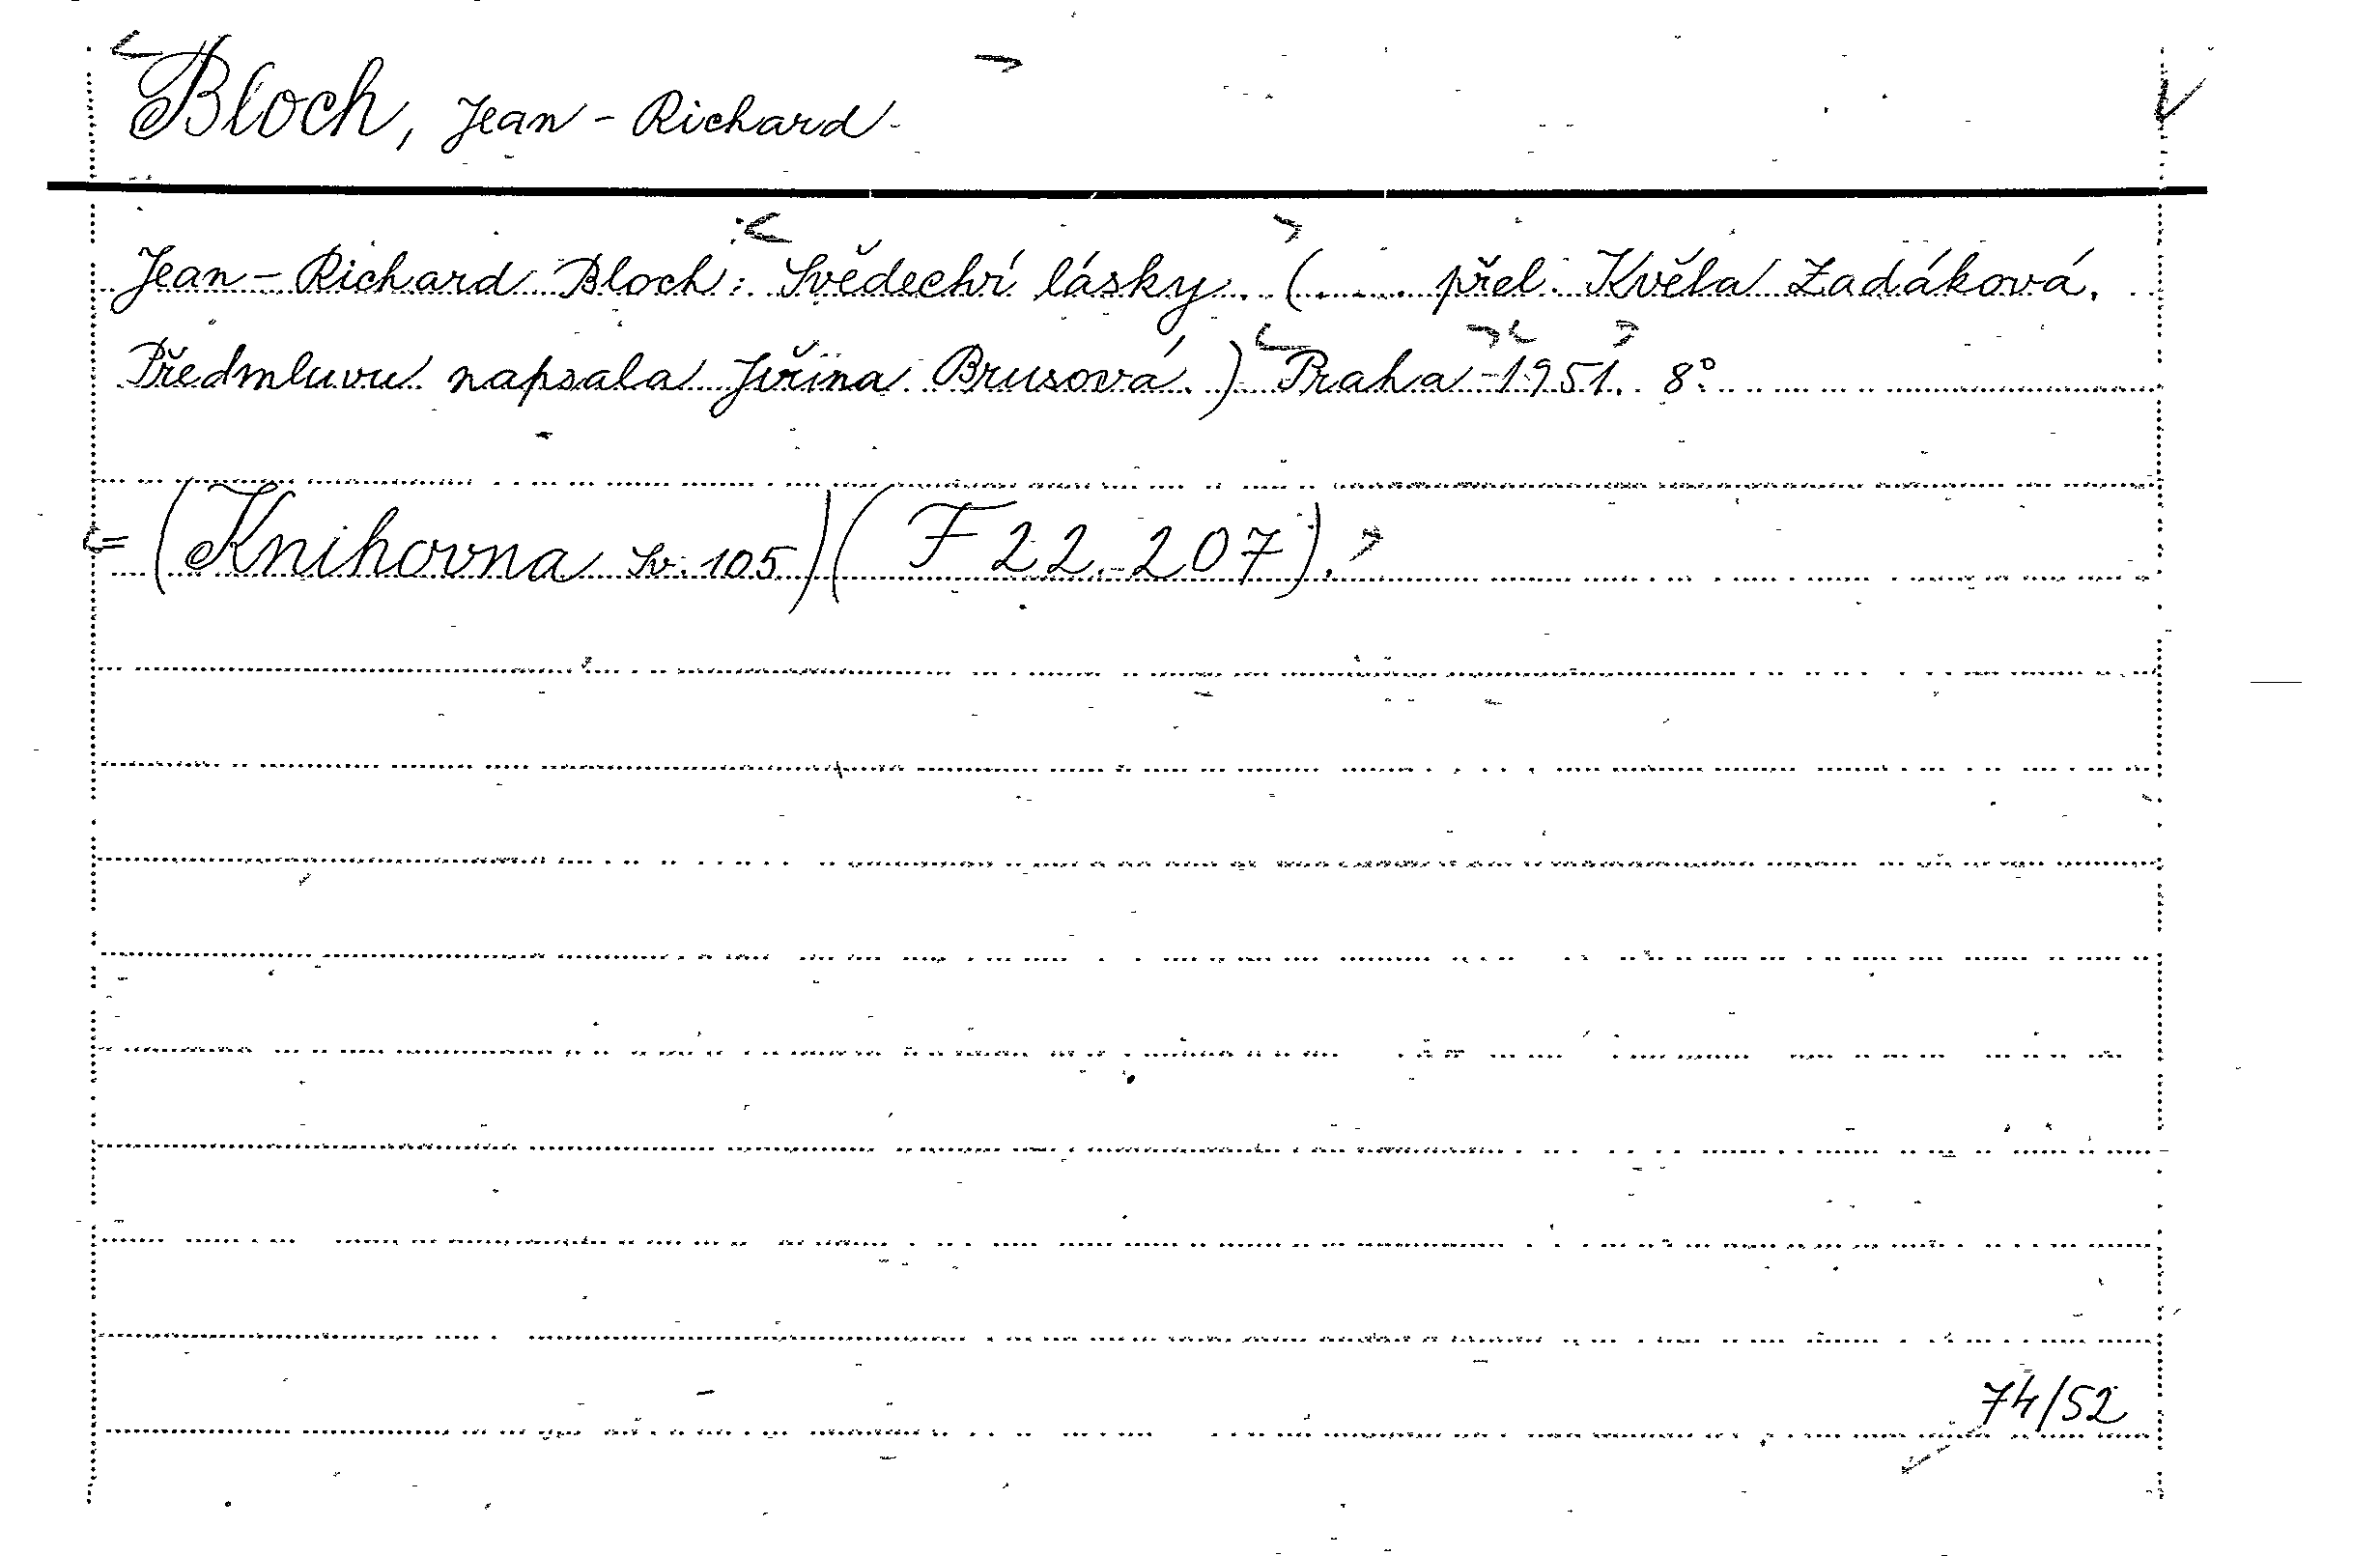 Bloch, Jean - Richard
Jean - Richard Bloch: Svědectví lásky. (... přel. Květa Zadáková.
Předmluvu napsala Jiřina Brusová.) Praha 1951. 8°.
= (Knihovna sv. 105) (F 22.207).
74/52